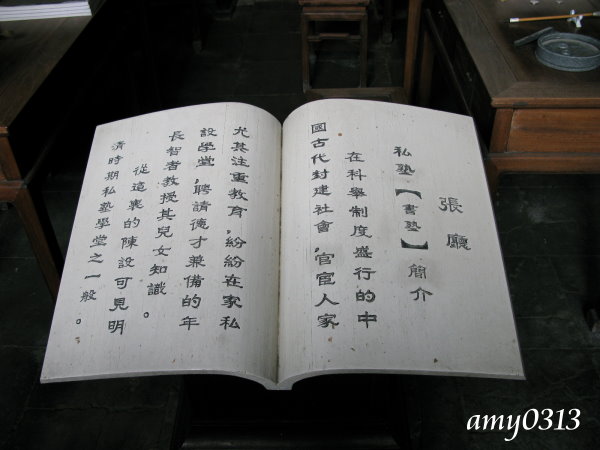 張廳
私塾【書塾】簡介
在科舉制度盛行的中
國古代封建社會，官宦人家
尤其注重教育，紛紛在家私
設學堂，聘請德才兼備的年
長智者教授其兒女知識。
從這裏的陳設可見明
清時期私塾學堂之一般。
amy0313